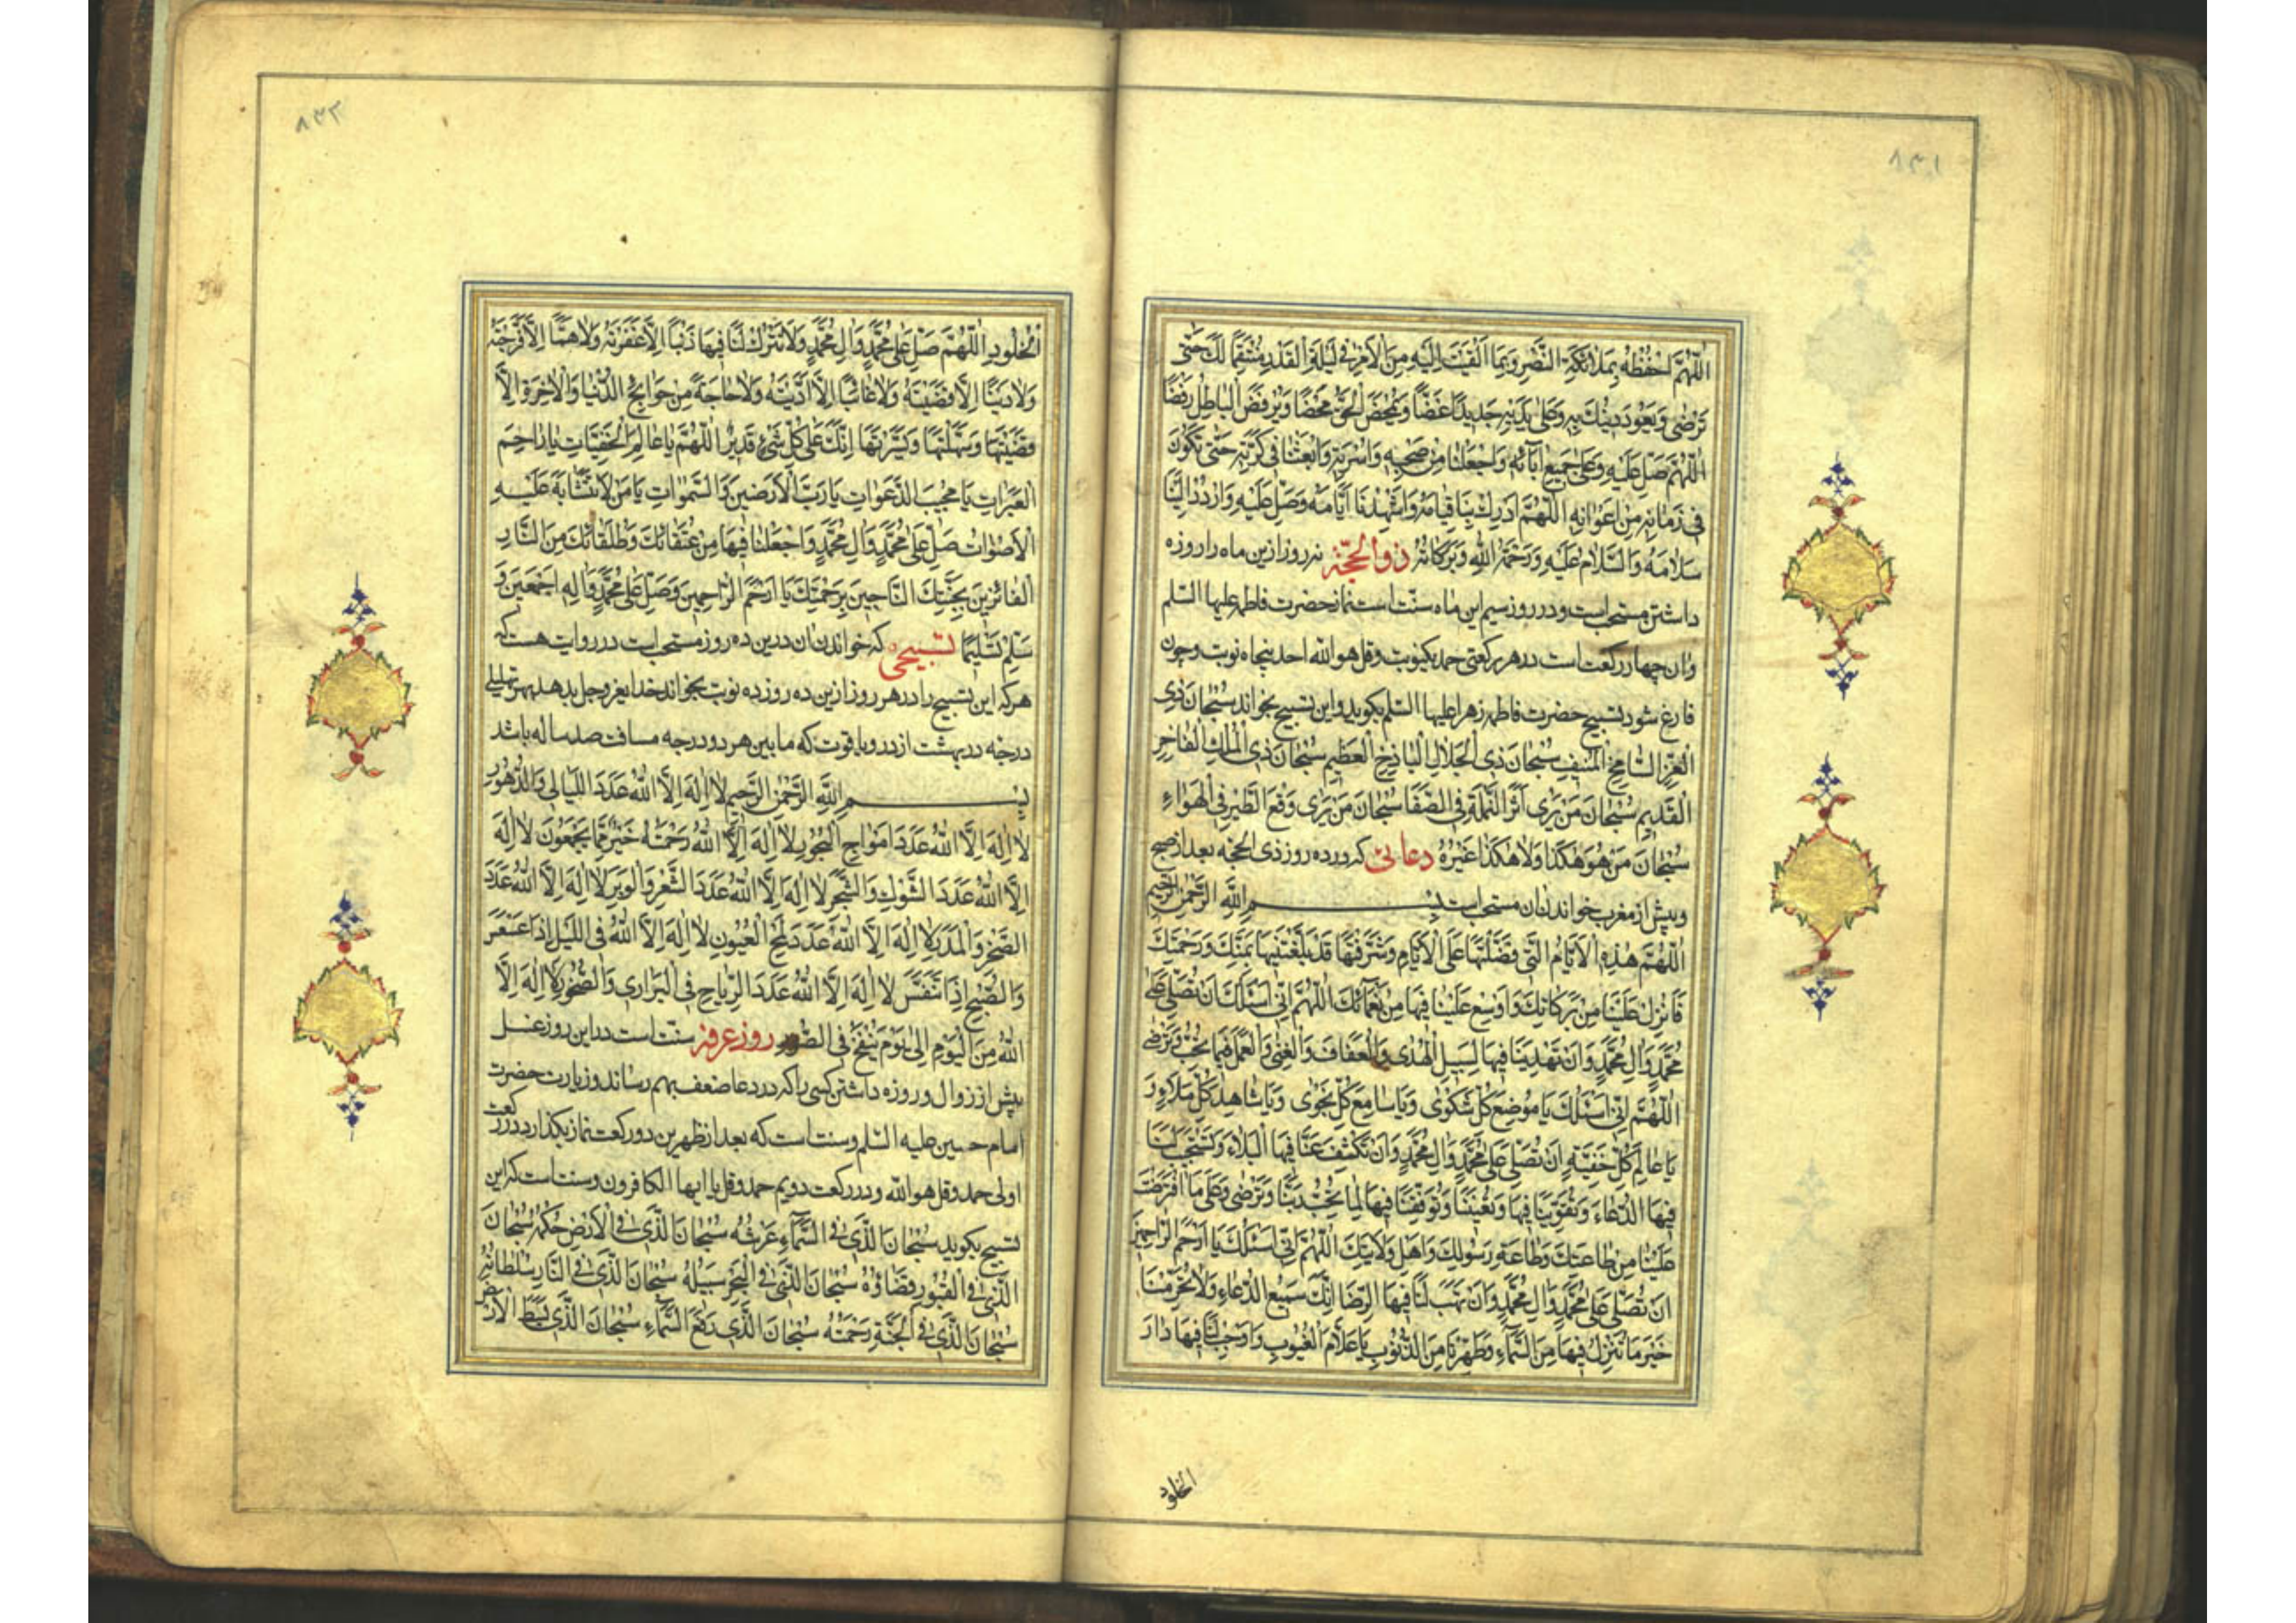 ٨٣١
اللّهُمَّ احْفَظْهُ بِمَلائِكَةِ النَّصْرِ وَبِمَا اَلْقَيْتَ اِلَيْهِ مِنَ الْاَمْرِ فِي لَيْلَةِ الْقَدْرِ مُنْتَقِمًا لَكَ حَتّى
تَرْضى وَيَعُودَ دِينُكَ بِهِ وَعَلى يَدَيْهِ جَدِيدًا غَضًّا وَيَمْحَضَ الْحَقَّ مَحْضًا وَيَرْفَضَ الْباطِلَ رَفْضًا
اللّهُمَّ صَلِّ عَلَيْهِ وَعَلى جَمِيعِ آبائِه وَاجْعَلْنا مِنْ صَحْبِهِ وَاُسْرَتِهِ وَابْعَثْنا فِي كَرَّتِهِ حَتّى نَكُونَ
فِي زَمانِهِ مِنْ اَعْوانِهِ اللّهُمَّ اَدْرِكْ بِنا قِيامَهُ وَاَشْهِدْنا اَيّامَهُ وَصَلِّ عَلَيْهِ وَارْدُدْ اِلَيْنا
سَلامَهُ وَالسَّلامُ عَلَيْهِ وَرَحْمَةُ اللهِ وَبَرَكاتُهُ ذوالحجّة نه روز ازین ماه را روزه
داشتن مستحب است و در روز سیم این ماه سنّت است نماز حضرت فاطمه علیها السلم
وان چهار رکعت است در هر رکعتی حمد یکنوبت وقل هو الله احد پنجاه نوبت وچون
فارغ شود تسبیح حضرت فاطمه زهرا علیها السلم بکوید و این تسبیح بخواند سُبْحانَ ذِي
الْعِزِّ الشّامِخِ الْمُنِيفِ سُبْحانَ ذِي الْجَلالِ الْباذِخِ الْعَظِيمِ سُبْحانَ ذِي الْمُلْكِ الْفاخِرِ
الْقَدِيمِ سُبْحانَ مَنْ يَرى اَثَرَ النَّمْلَةِ فِي الصَّفا سُبْحانَ مَنْ يَرى وَقْعَ الطَّيْرِ فِي الْهَواءِ
سُبْحانَ مَنْ هُوَ هكَذا وَلا هكَذا غَيْرُهُ دعائی که در ده روز ذی الحجه بعد از صبح
و پیش از مغرب خواندن ان مستحب است بِسْمِ اللهِ الرَّحْمنِ الرَّحِيمِ
اللّهُمَّ هذِهِ الْاَيّامُ الَّتِي فَضَّلْتَها عَلَى الْاَيّامِ وَشَرَّفْتَها قَدْ بَلَّغْتَنِيها بِمَنِّكَ وَرَحْمَتِكَ
فَاَنْزِلْ عَلَيْنا مِنْ بَرَكاتِكَ وَاَوْسِعْ عَلَيْنا فِيها مِنْ نَعْمائِكَ اللّهُمَّ اِنِّي اَسْئَلُكَ اَنْ تُصَلِّيَ عَلى
مُحَمَّدٍ وَالِ مُحَمَّدٍ وَاَنْ تَهْدِيَنا فِيها لِسَبِيلِ الْهُدى وَالْعَفافِ وَالْغِنى وَالْعَمَلِ فِيما تُحِبُّ وَتَرْضى
اللّهُمَّ اِنِّي اَسْئَلُكَ يا مَوْضِعَ كُلِّ شَكْوى وَيا سامِعَ كُلِّ نَجْوى وَيا شاهِدَ كُلِّ مَلَاءٍ وَ
يا عالِمَ كُلِّ خَفِيَّةٍ اَنْ تُصَلِّيَ عَلى مُحَمَّدٍ وَالِ مُحَمَّدٍ وَاَنْ تَكْشِفَ عَنّا فِيها الْبَلاءَ وَتَسْتَجِيبَ لَنا
فِيها الدُّعاءَ وَتُقَوِّيَنا فِيها وَتُعِينَنا وَتُوَفِّقَنا فِيها لِما تُحِبُّ رَبَّنا وَتَرْضى وَعَلى مَا افْتَرَضْتَ
عَلَيْنا مِنْ طاعَتِكَ وَطاعَةِ رَسُولِكَ وَاَهْلِ وَلايَتِكَ اللّهُمَّ اِنِّي اَسْئَلُكَ يا اَرْحَمَ الرّاحِمِينَ
اَنْ تُصَلِّيَ عَلى مُحَمَّدٍ وَالِ مُحَمَّدٍ وَاَنْ تَهَبَ لَنا فِيها الرِّضا اِنَّكَ سَمِيعُ الدُّعاءِ وَلا تَحْرِمْنا
خَيْرَ ما تُنْزِلُ فِيها مِنَ السَّماءِ وَطَهِّرْنا مِنَ الذُّنُوبِ يا عَلّامَ الْغُيُوبِ وَاَوْجِبْ لَنا فِيها دارَ
الخلود
٨٣٢
الْخُلُودِ اللّهُمَّ صَلِّ عَلى مُحَمَّدٍ وَالِ مُحَمَّدٍ وَلا تَتْرُكْ لَنا فِيها ذَنْبًا اِلّا غَفَرْتَهُ وَلا هَمًّا اِلّا فَرَّجْتَهُ
وَلا دَيْنًا اِلّا قَضَيْتَهُ وَلا غائِبًا اِلّا اَدَّيْتَهُ وَلا حاجَةً مِنْ حَوائِجِ الدُّنْيا وَالْاخِرَةِ اِلّا
قَضَيْتَها وَسَهَّلْتَها وَيَسَّرْتَها اِنَّكَ عَلى كُلِّ شَيْءٍ قَدِيرٌ اللّهُمَّ يا عالِمَ الْخَفِيّاتِ يا راحِمَ
الْعَبَراتِ يا مُجِيبَ الدَّعَواتِ يا رَبَّ الْاَرَضِينَ وَالسَّمواتِ يا مَنْ لا تَتَشابَهُ عَلَيْهِ
الْاَصْواتُ صَلِّ عَلى مُحَمَّدٍ وَالِ مُحَمَّدٍ وَاجْعَلْنا فِيها مِنْ عُتَقائِكَ وَطُلَقائِكَ مِنَ النّارِ
الْفائِزِينَ بِجَنَّتِكَ النّاجِينَ بِرَحْمَتِكَ يا اَرْحَمَ الرّاحِمِينَ وَصَلَّى عَلى مُحَمَّدٍ وَالِهِ اَجْمَعِينَ وَ
سَلِّمْ تَسْلِيمًا تسبیحی که خواندن ان درین ده روز مستحب است در روایت هست که
هر که این تسبیح را در هر روز ازین ده روز ده نوبت بخواند خدایعز وجل بدهد بهر تهلیلی
درجه در بهشت از در و یاقوت که ما بین هر دو درجه مسافت صد ساله باشد
بِسْمِ اللهِ الرَّحْمنِ الرَّحِيمِ لا اِلهَ اِلّا اللهُ عَدَدَ اللَّيالِي وَالدُّهُورِ
لا اِلهَ اِلّا اللهُ عَدَدَ اَمْواجِ الْبُحُورِ لا اِلهَ اِلّا اللهُ رَحْمَتُهُ خَيْرٌ مِمّا يَجْمَعُونَ لا اِلهَ
اِلّا اللهُ عَدَدَ الشَّوْكِ وَالشَّجَرِ لا اِلهَ اِلّا اللهُ عَدَدَ الشَّعْرِ وَالْوَبَرِ لا اِلهَ اِلّا اللهُ عَدَدَ
الصَّخْرِ وَالْمَدَرِ لا اِلهَ اِلّا اللهُ عَدَدَ لَمْحِ الْعُيُونِ لا اِلهَ اِلّا اللهُ فِي اللَّيْلِ اِذا عَسْعَسَ
وَالصُّبْحِ اِذا تَنَفَّسَ لا اِلهَ اِلّا اللهُ عَدَدَ الرِّياحِ فِي الْبَرارِي وَالصُّخُورِ لا اِلهَ اِلّا
اللهُ مِنَ الْيَوْمِ اِلى يَوْمِ يُنْفَخُ فِي الصُّورِ روز عرفه سنّت است در این روز غسل
پیش از زوال و روزه داشتن کسی را که در دعا ضعف بهم رساند و زیارت حضرت
امام حسین علیه السلم وسنت است که بعد از ظهرین دو رکعت نماز بکذارد در رکعت
اولی حمد وقل هو الله و در رکعت دویم حمد وقل یا ایها الکافرون وسنت است که این
تسبیح بکوید سُبْحانَ الَّذِي فِي السَّماءِ عَرْشُهُ سُبْحانَ الَّذِي فِي الْاَرْضِ حُكْمُهُ سُبْحانَ
الَّذِي فِي الْقُبُورِ قَضاؤُهُ سُبْحانَ الَّذِي فِي الْبَحْرِ سَبِيلُهُ سُبْحانَ الَّذِي فِي النّارِ سُلْطانُهُ
سُبْحانَ الَّذِي فِي الْجَنَّةِ رَحْمَتُهُ سُبْحانَ الَّذِي رَفَعَ السَّماءِ سُبْحانَ الَّذِي بَسَطَ الْاَرْضَ